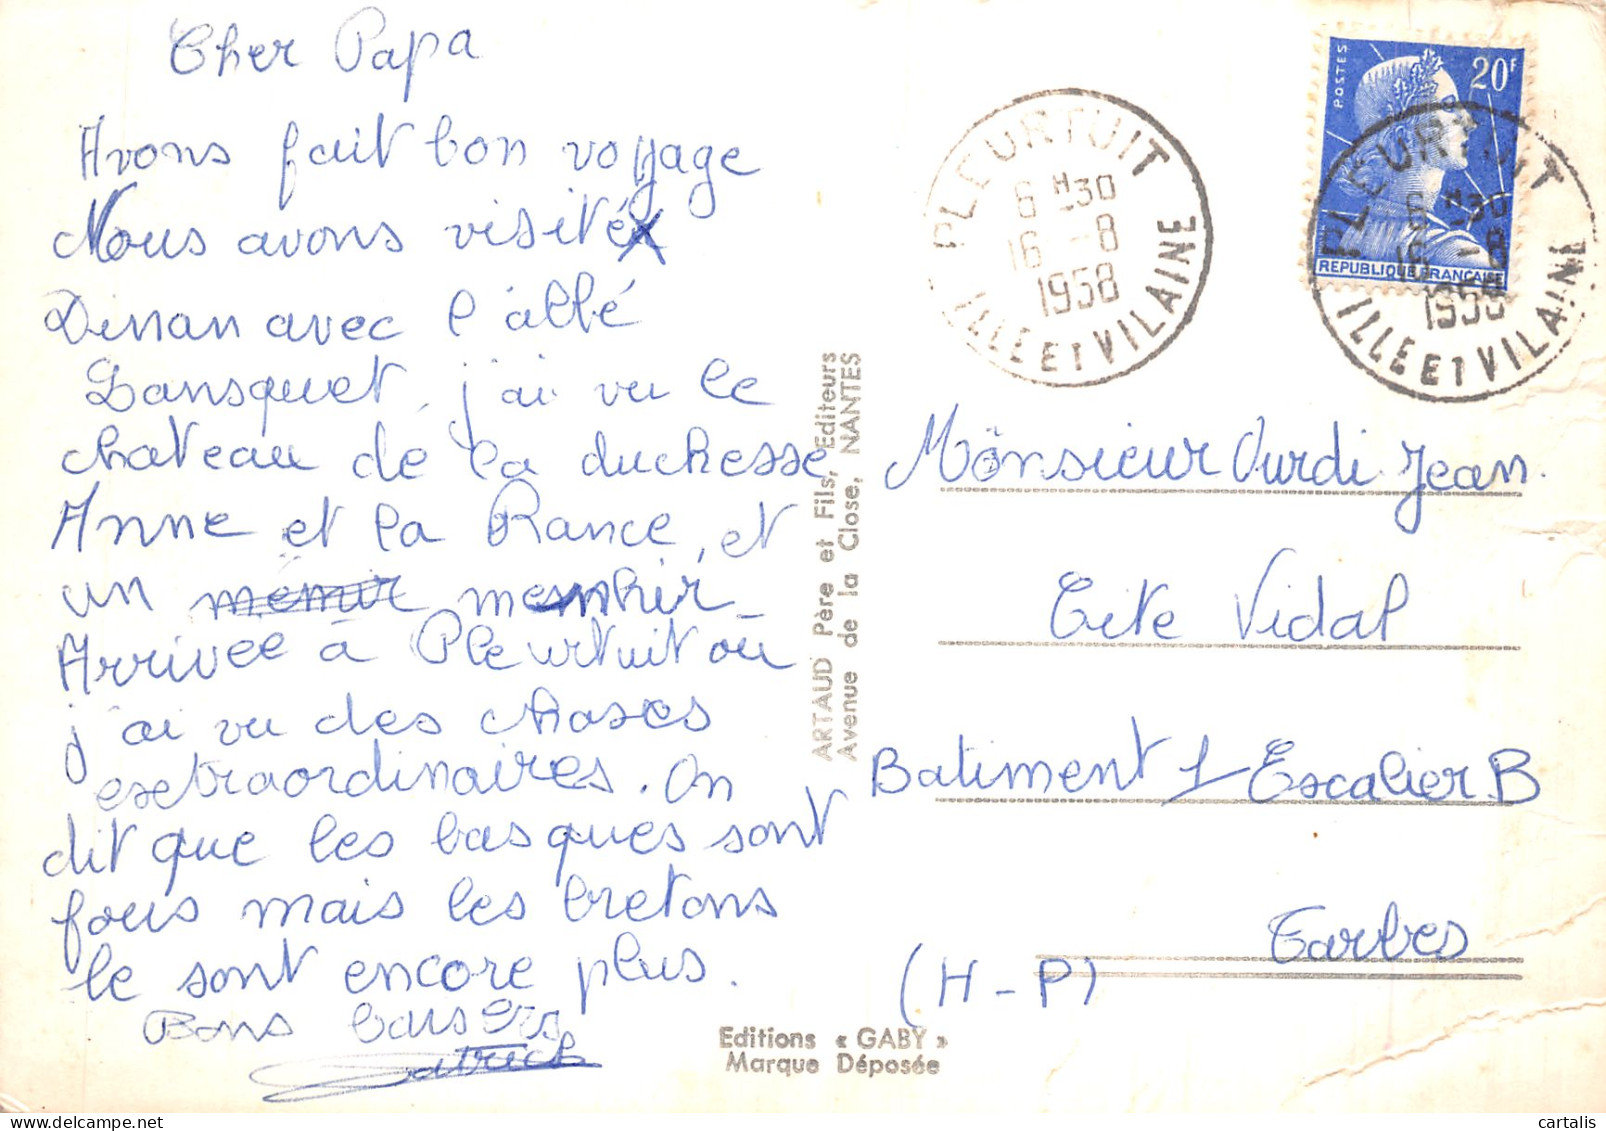 Cher Papa
Avons fait bon voyage
Nous avons visité
Dinan avec l'abbé
Lansquet, j'ai vu le
chateau de la duchesse
Anne et la Rance, et
un menir menhir
Arrivee à Pleurtuit où
j'ai vu des choses
esctraordinaires. On
dit que les basques sont
fous mais les bretons
le sont encore plus.
Bons baisers
Patrick
ARTAUD Père et Fils, Editeurs
Avenue de la Close, NANTES
Editions « GABY »
Marque Déposée
PLEURTUIT
6 H 30
16 - 8
1958
ILLE ET VILAINE
POSTES
20F
REPUBLIQUE FRANÇAISE
PLEURTUIT
6 H 30
16 - 8
1958
ILLE ET VILAINE
Monsieur Ourdi Jean.
Cite Vidal
Batiment 1 Escalier B
Tarbes
(H-P)
cartalis